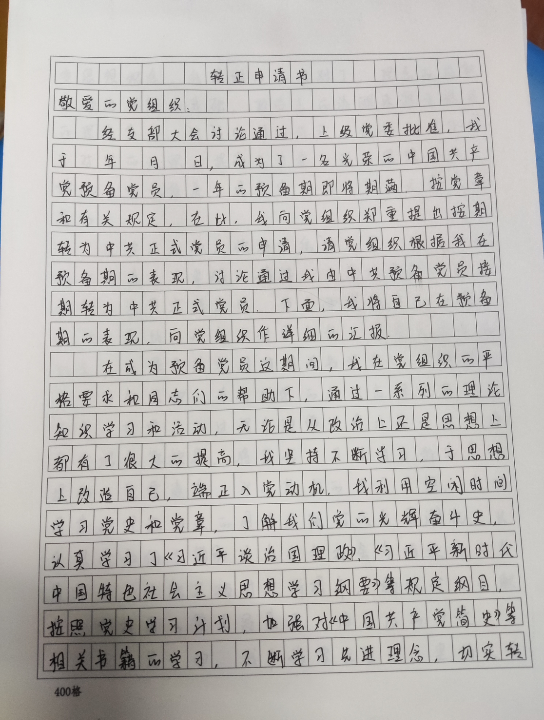 转正申请书
敬爱的党组织:
经支部大会讨论通过,上级党委批准,我
于 年 月 日,成为了一名光荣的中国共产
党预备党员,一年的预备期即将期满,按党章
和有关规定,在此,我向党组织郑重提出按期
转为中共正式党员的申请,请党组织根据我在
预备期的表现,讨论通过我由中共预备党员按
期转为中共正式党员.下面,我将自己在预备
期的表现,向党组织作详细的汇报.
在成为预备党员这期间,我在党组织的严
格要求和同志们的帮助下,通过一系列的理论
知识学习和活动,无论是从政治上还是思想上
都有了很大的提高,我坚持不断学习,于思想
上改造自己,端正入党动机.我利用空闲时间
学习党史和党章,了解我们党的光辉奋斗史,
认真学习了《习近平谈治国理政》、《习近平新时代
中国特色社会主义思想学习纲要》等规定纲目,
按照党史学习计划,加强对《中国共产党简史》等
相关书籍的学习,不断学习先进理念,切实转
400格